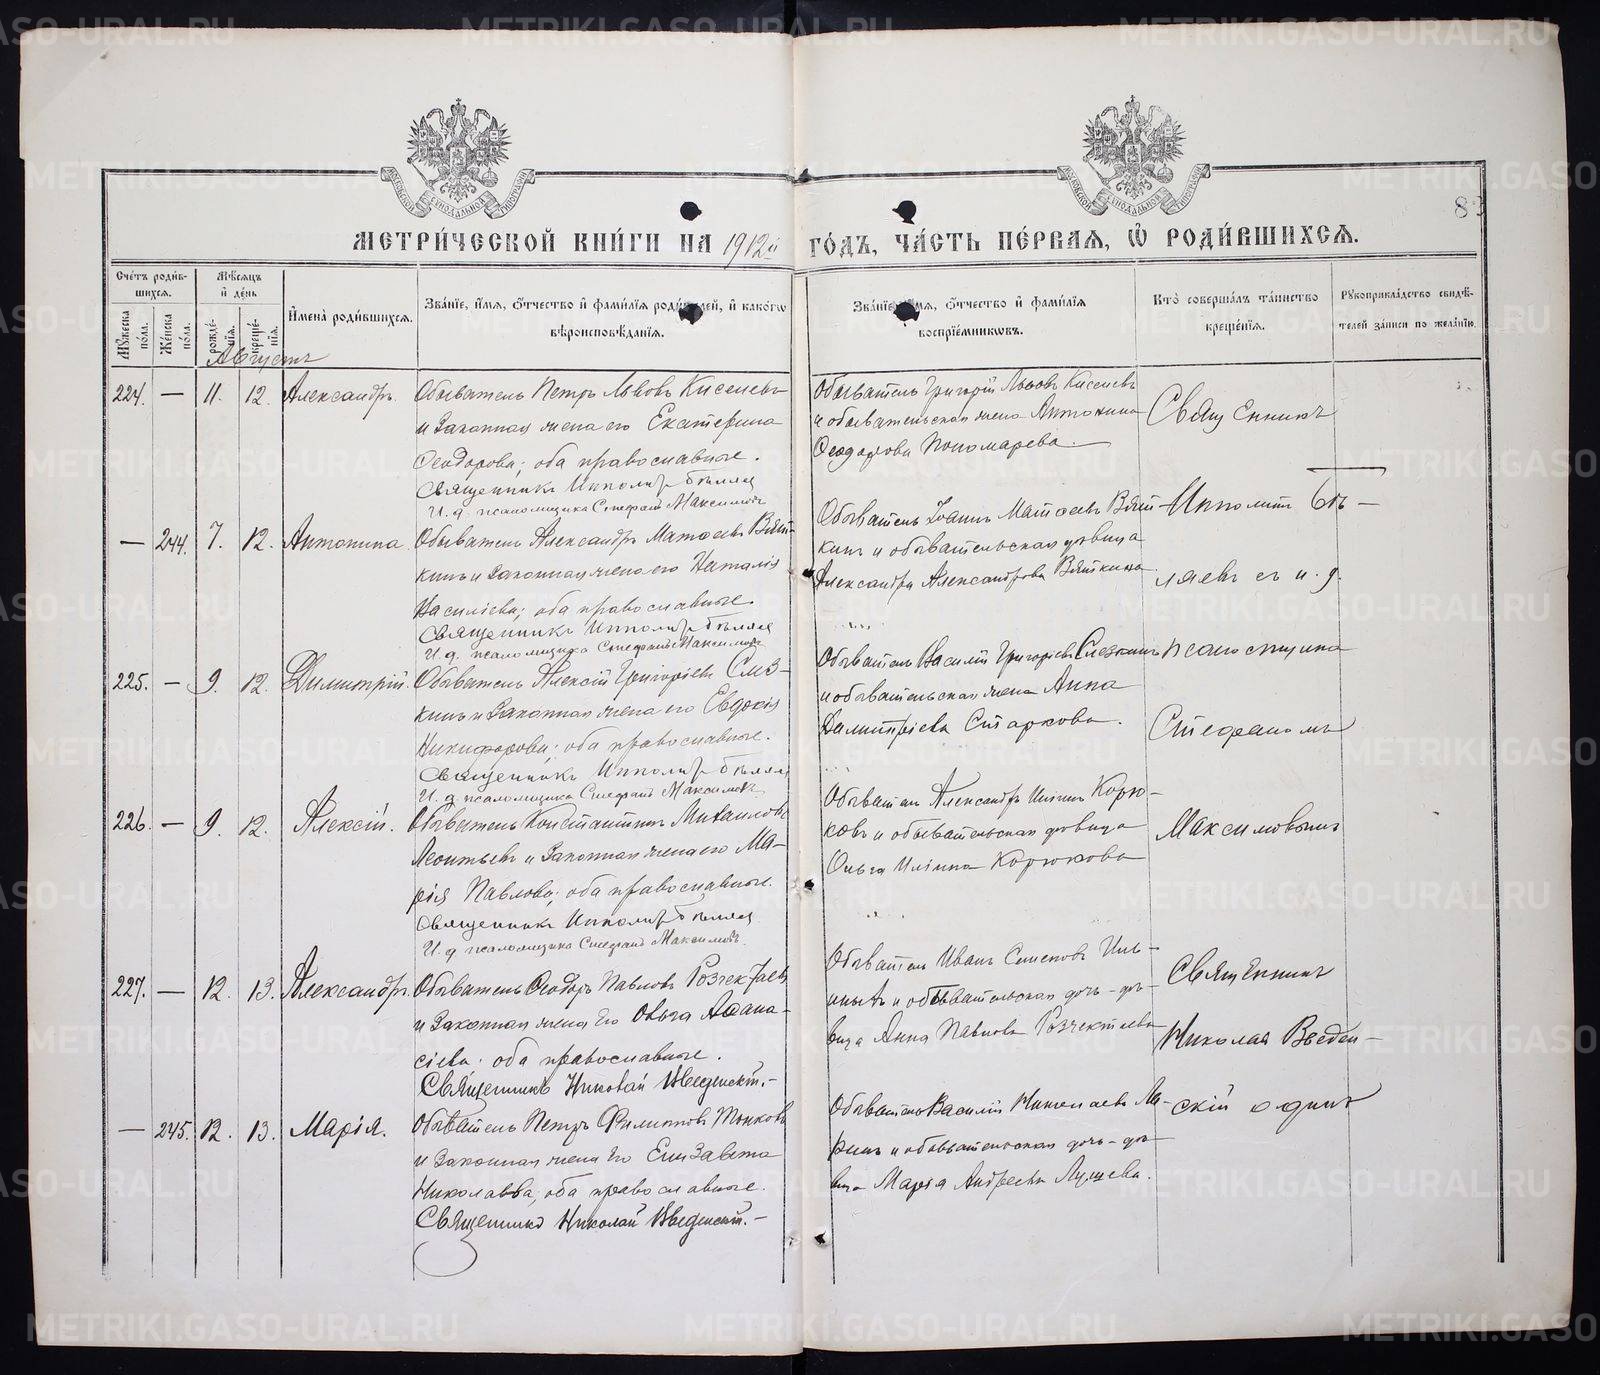 83
МЕТРИ́ЧЕСКОЙ КНИ́ГИ НА 1912й ГО́ДЪ, ЧА́СТЬ ПЕ́РВАЯ, Ѡ҆ РОДИ́ВШИХСЯ.
Сче́тъ роди́в-
шихся.
Му́жеска по́ла.
Же́нска по́ла.
Мѣ́сяцъ
и҆ де́нь
рожде́нїя.
креще́нїя.
И҆мена̀ роди́вшихся.
Зва́нїе, и҆́мя, ѻ҆́тчество и҆ фами́лїя роди́телей, и҆ како́гѡ
вѣроисповѣ́данїя.
Зва́нїе, и҆́мя, ѻ҆́тчество и҆ фами́лїя
воспрїе́мниковъ.
Кто̀ соверша́лъ та́инство
креще́нїя.
Рꙋкоприкла́дство свидѣ́-
телей за́писи по жела́нїю.
Августъ
224. — 11. 12. Александръ.
Обыватель Петръ Львовъ Киселевъ
и законная жена его Екатерина
Ѳеодорова; оба православные.
Священникъ Ипполитъ Бѣляев
И. д. псаломщика Стефанъ Максимовъ
Обыватель Григорій Львовъ Киселевъ
и обывательская жена Антонина
Ѳеодорова Пономарева.
Священникъ
— 244. 7. 12. Антонина.
Обыватель Александръ Матѳеевъ Вят-
кинъ и законная жена его Наталія
Василіева; оба православные.
Священникъ Ипполитъ Бѣляев
И. д. псаломщика Стефанъ Максимовъ
Обыватель Іоаннъ Матѳеевъ Вят-
кинъ и обывательская дѣвица
Александра Александрова Вяткина.
Ипполитъ Бѣ-
ляевъ съ и. д.
225. — 9. 12. Димитрій.
Обыватель Алексій Григоріевъ Слез-
кинъ и законная жена его Евдокія
Никифорова; оба православные.
Священникъ Ипполитъ Бѣляев
И. д. псаломщика Стефанъ Максимовъ
Обыватель Василій Григоріевъ Слезкинъ
и обывательская жена Анна
Димитріева Старкова.
псаломщика
Стефаномъ
226. — 9. 12. Алексій.
Обыватель Константинъ Михаиловъ
Леонтьевъ и законная жена его Ма-
рія Павлова; оба православные.
Священникъ Ипполитъ Бѣляев
И. д. псаломщика Стефанъ Максимовъ.
Обыватель Александръ Иліинъ Корю-
ковъ и обывательская дѣвица
Ольга Иліина Корюкова
Максимовымъ
227. — 12. 13. Александръ.
Обыватель Ѳеодоръ Павловъ
и законная жена его Ольга Аѳана-
сіева; оба православные.
Священникъ Николай Введенскій.—
Обыватель Иванъ Семеновъ Иль-
иныхъ и обывательская дочь-дѣ-
вица Анна Павлова
Священникъ
Николай Введен-
— 245. 12. 13. Марія.
Обыватель Петръ Филипповъ Тонковъ
и законная жена его Елизавета
Николаева, оба православные.
Священникъ Николай Введенскій.—
Обыватель Василій Николаевъ Ла-
ринъ и обывательская дочь-дѣ-
вица Марія Андреева Лущева.
скій одинъ